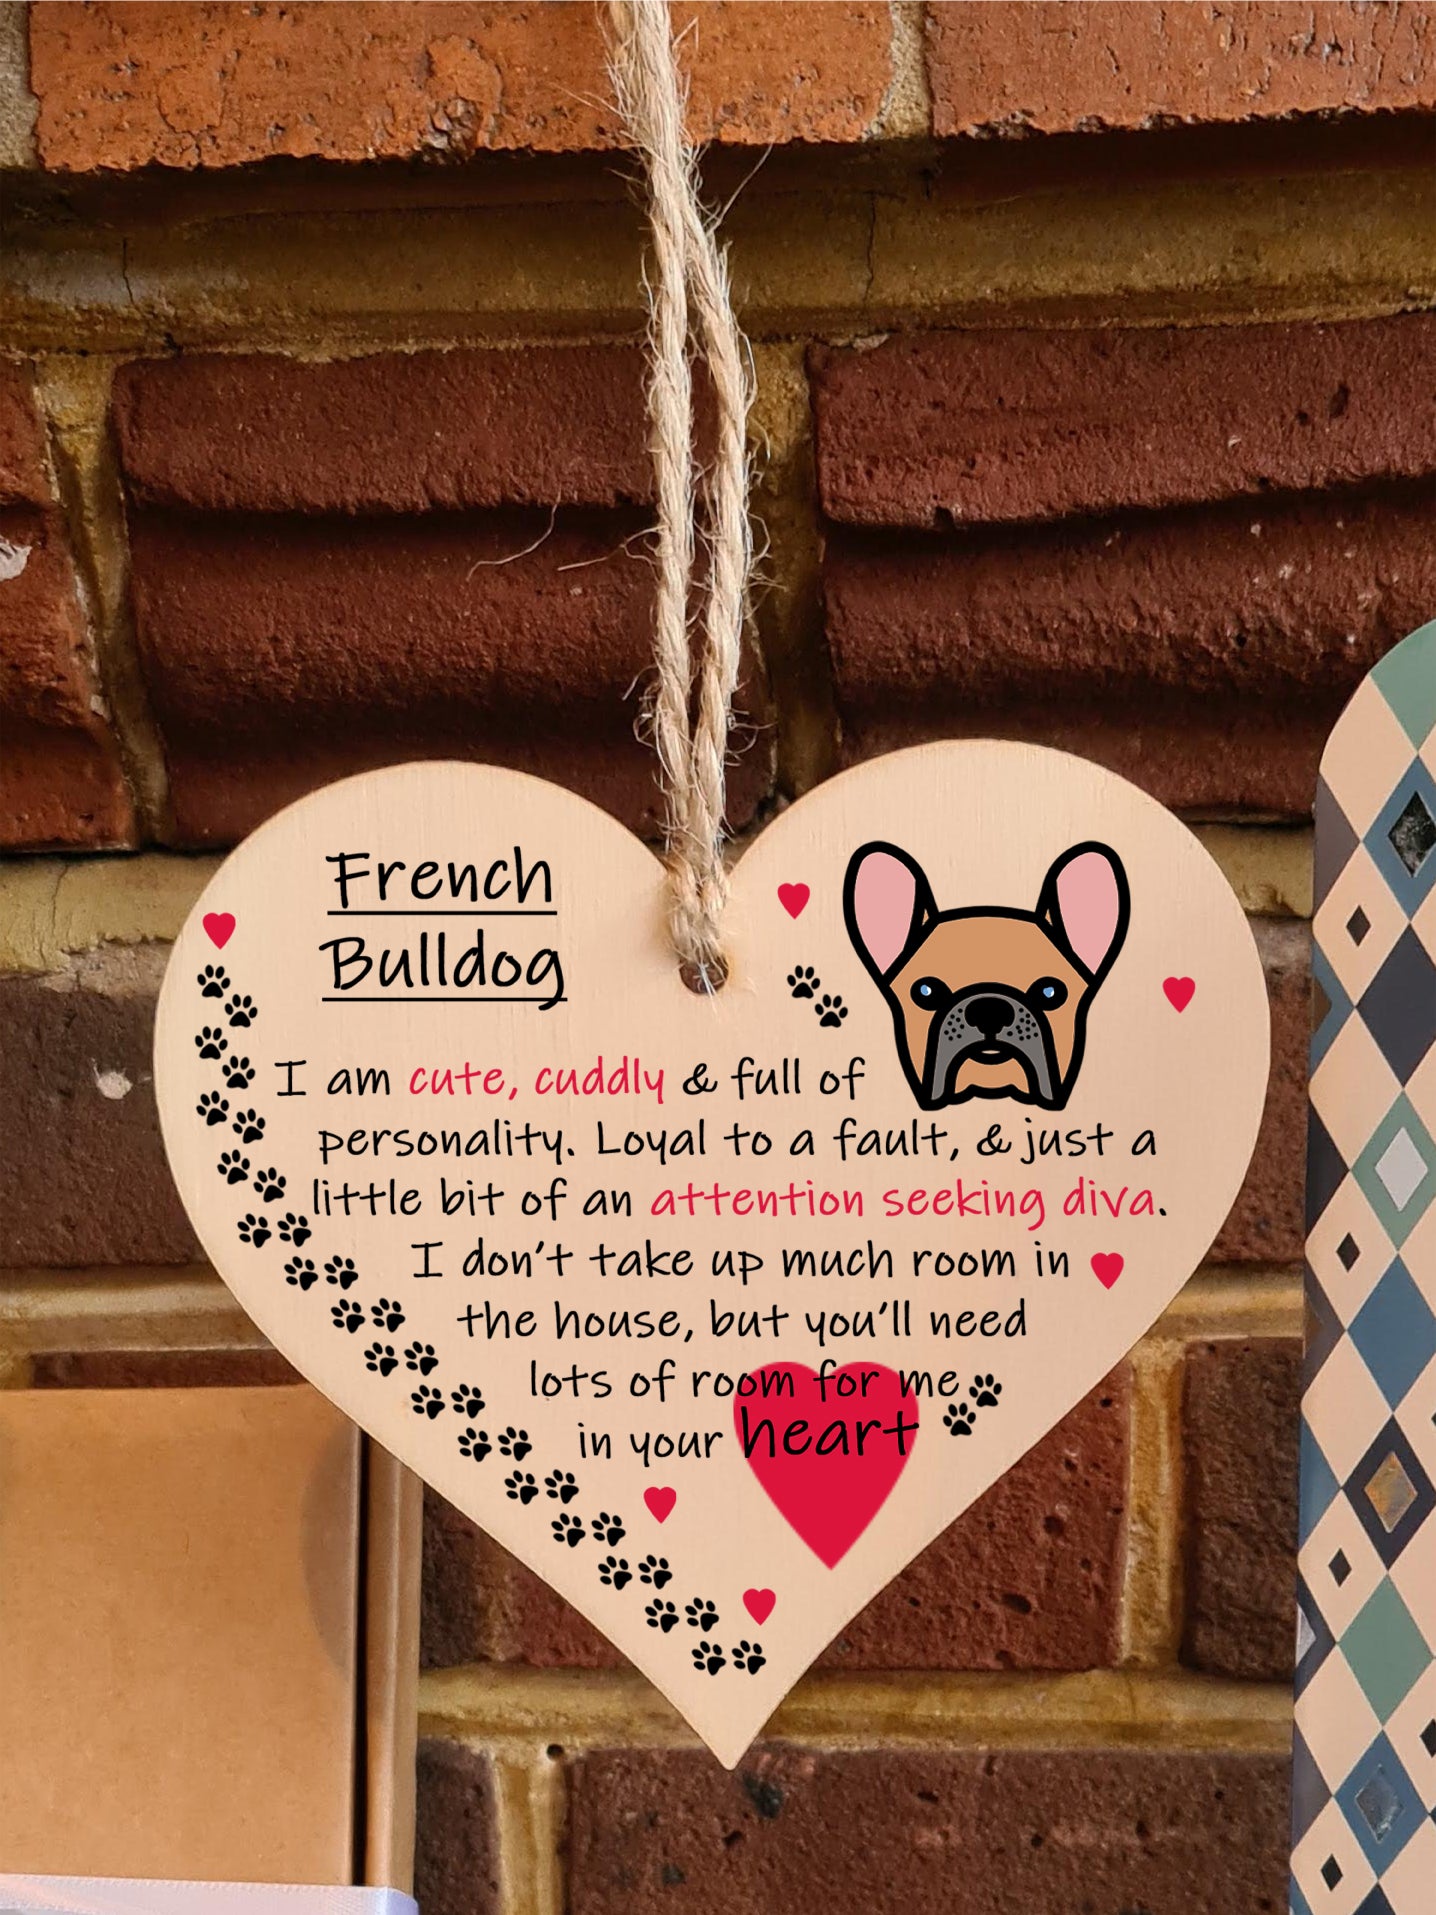 French
Bulldog
I am cute, cuddly & full of
personality. Loyal to a fault, & just a
little bit of an attention seeking diva.
I don't take up much room in
the house, but you'll need
lots of room for me
in your heart